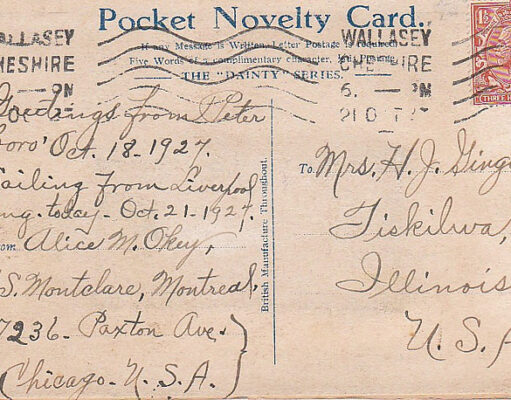 Pocket Novelty Card.
If any Message is Written, Letter Postage is required
Five Words of a complimentary character,
THE "DAINTY" SERIES.
ALLASEY
HESHIRE
PM
WALLASEY
CHESHIRE
6. PM
21 OCT 27
THREE
Greetings from Peter
boro' Oct. 18-1927.
Sailing from Liverpool
Eng. today - Oct. 21-1927.
From Alice M. Okey,
S.S. Montclare, Montreal,
7236 - Paxton Ave.
Chicago - U.S.A.
British Manufacture Throughout.
To Mrs. H. J. Ging
Tiskilwa,
Illinois
U.S.A